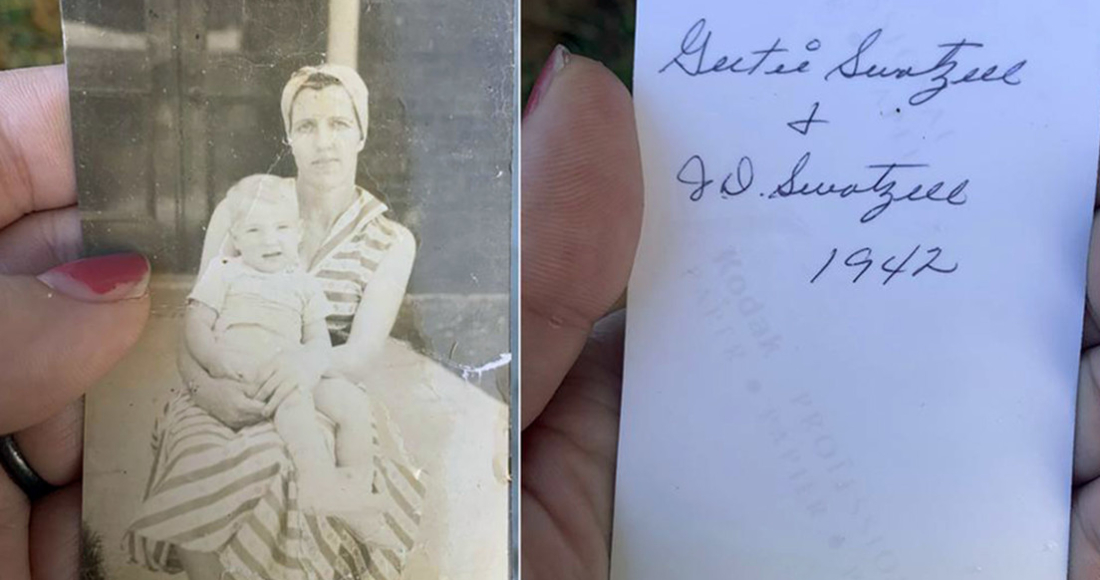 Gertie Swatzell
&
J.D. Swatzell
1942
Kodak PROFESSIO
PAPER • PAPER •